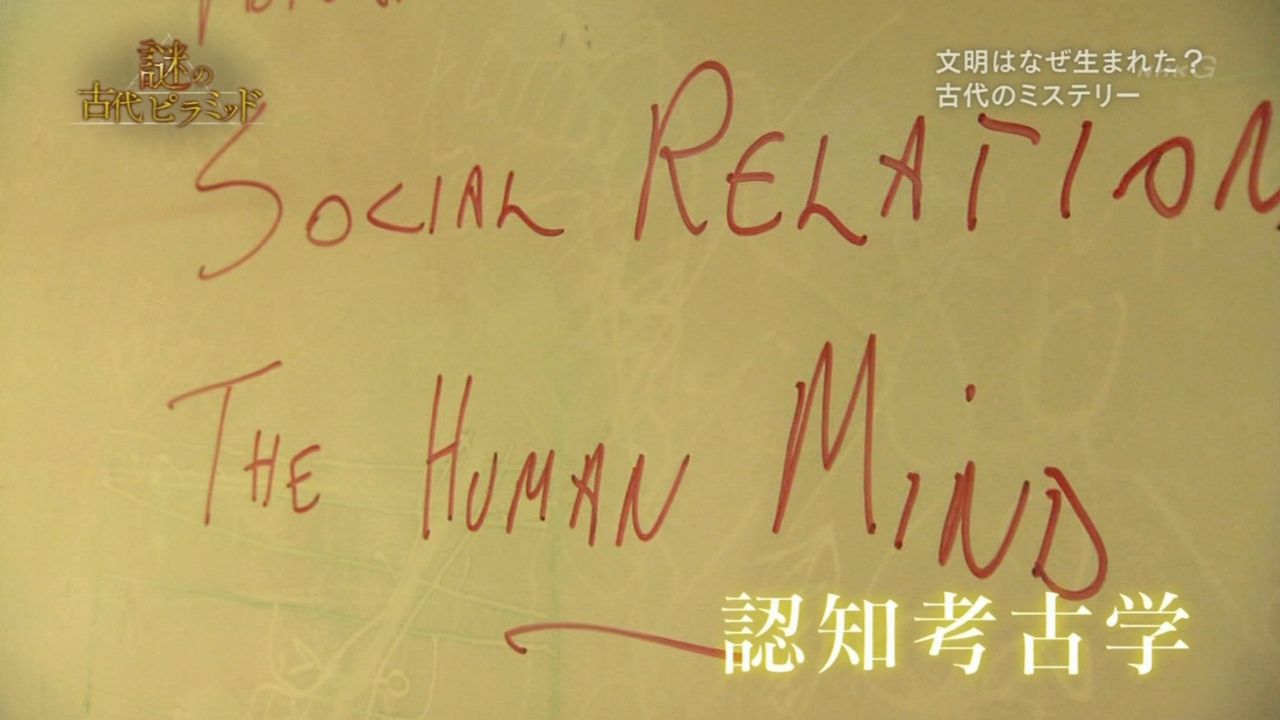 謎の
古代ピラミッド
文明はなぜ生まれた?
古代のミステリー
NHK G
SOCIAL RELATION
THE HUMAN MIND
認知考古学